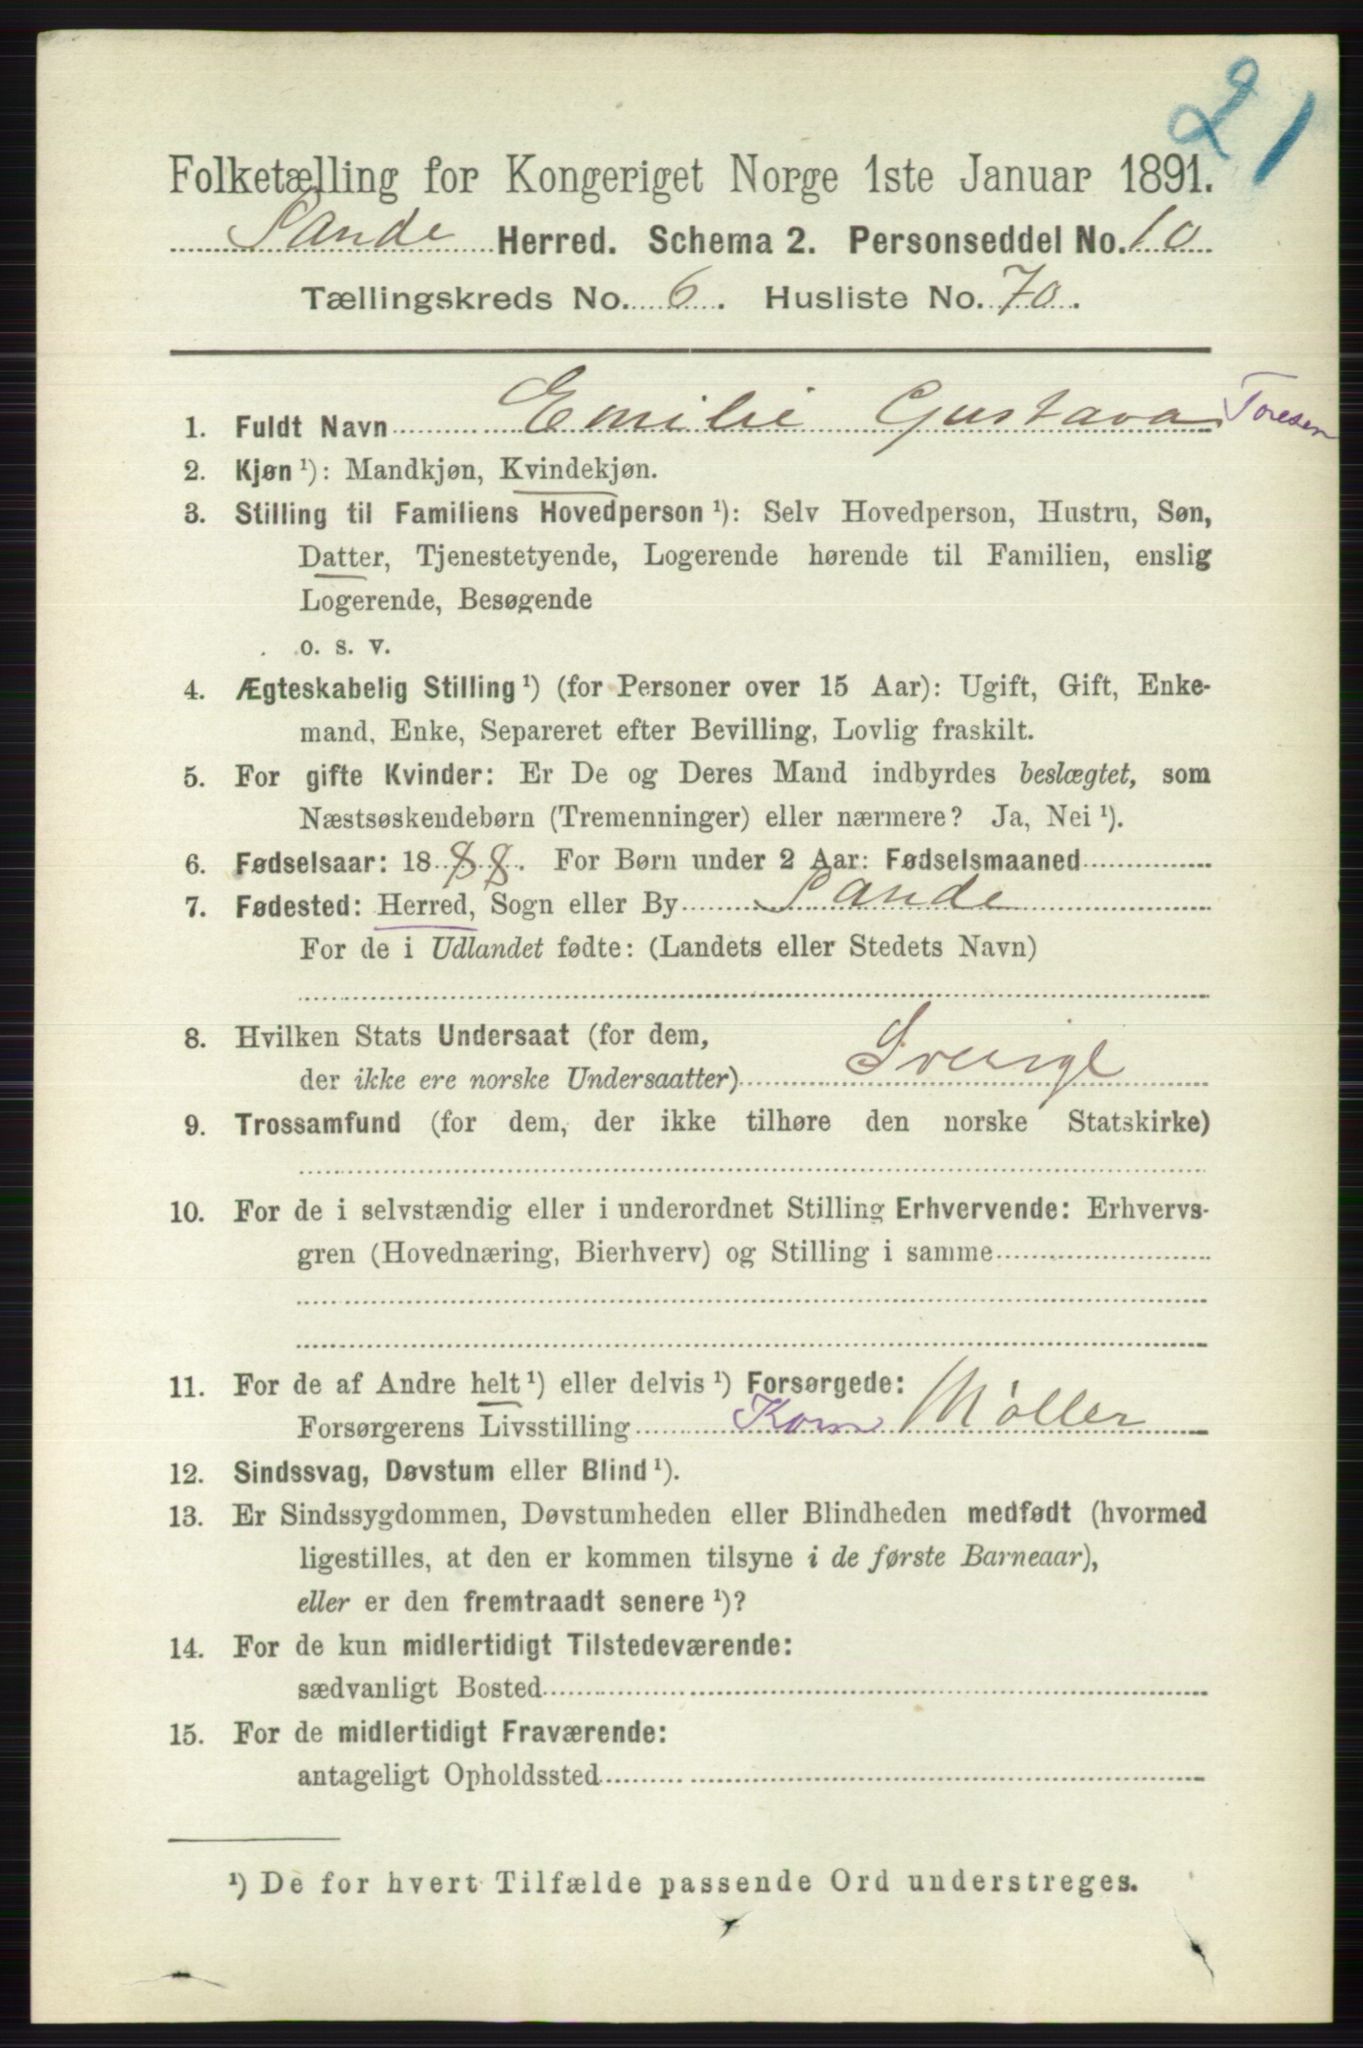 21
Folketælling for Kongeriget Norge 1ste Januar 1891.
Sande Herred. Schema 2. Personseddel No. 10
Tællingskreds No. 6. Husliste No. 70.
1. Fuldt Navn Emilie Gustava Toresen
2. Kjøn ¹): Mandkjøn, Kvindekjøn.
3. Stilling til Familiens Hovedperson ¹): Selv Hovedperson, Hustru, Søn,
Datter, Tjenestetyende, Logerende hørende til Familien, enslig
Logerende, Besøgende
o. s. v.
4. Ægteskabelig Stilling ¹) (for Personer over 15 Aar): Ugift, Gift, Enke-
mand, Enke, Separeret efter Bevilling, Lovlig fraskilt.
5. For gifte Kvinder: Er De og Deres Mand indbyrdes beslægtet, som
Næstsøskendebørn (Tremenninger) eller nærmere? Ja, Nei ¹).
6. Fødselsaar: 1888. For Børn under 2 Aar: Fødselsmaaned
7. Fødested: Herred, Sogn eller By Sande
For de i Udlandet fødte: (Landets eller Stedets Navn)
8. Hvilken Stats Undersaat (for dem,
der ikke ere norske Undersaatter) Sverige
9. Trossamfund (for dem, der ikke tilhøre den norske Statskirke)
10. For de i selvstændig eller i underordnet Stilling Erhvervende: Erhvervs-
gren (Hovednæring, Bierhverv) og Stilling i samme
11. For de af Andre helt ¹) eller delvis ¹) Forsørgede:
Forsørgerens Livsstilling Korn Møller
12. Sindssvag, Døvstum eller Blind ¹).
13. Er Sindssygdommen, Døvstumheden eller Blindheden medfødt (hvormed
ligestilles, at den er kommen tilsyne i de første Barneaar),
eller er den fremtraadt senere ¹)?
14. For de kun midlertidigt Tilstedeværende:
sædvanligt Bosted
15. For de midlertidigt Fraværende:
antageligt Opholdssted
¹) De for hvert Tilfælde passende Ord understreges.